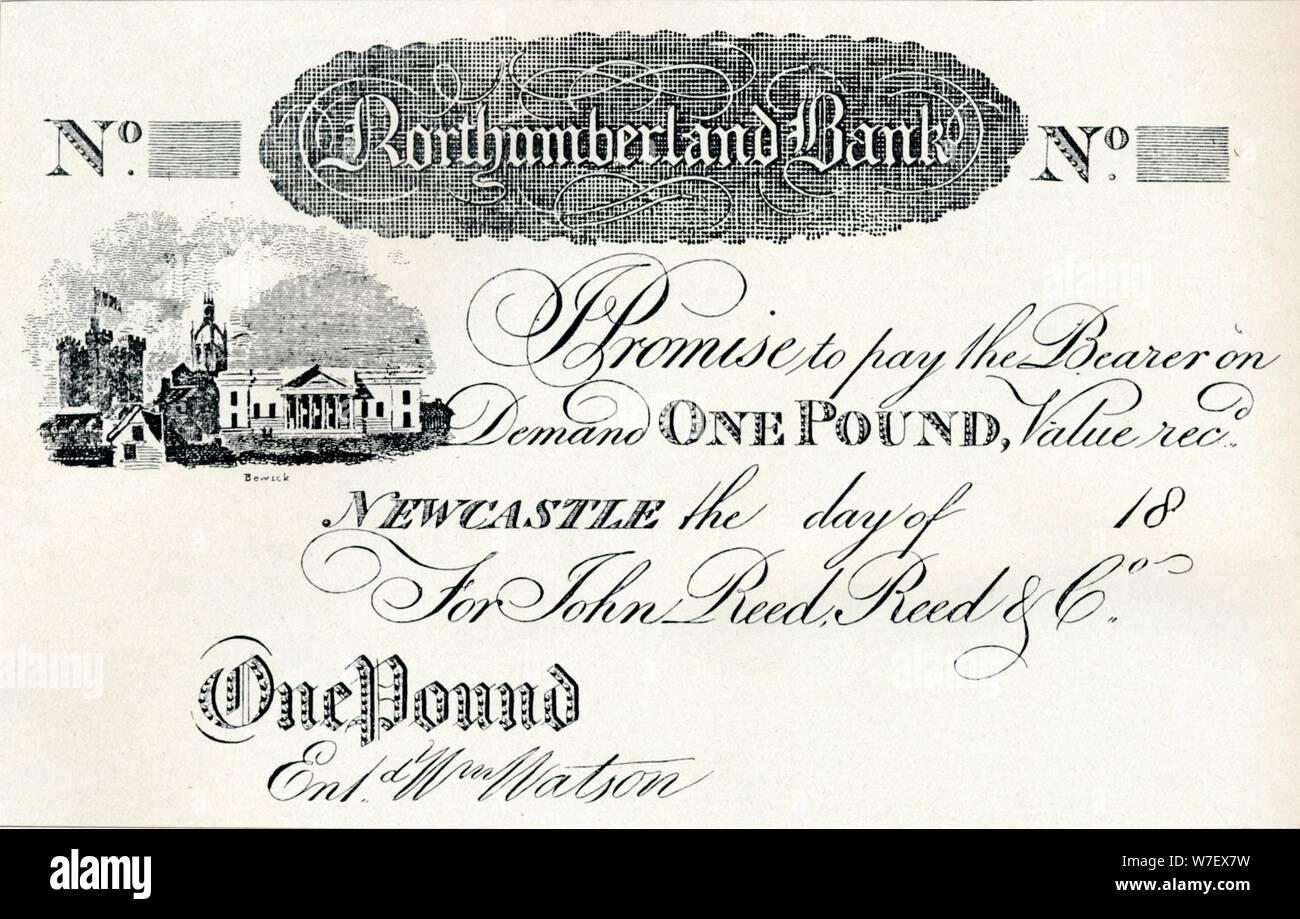 Northumberland Bank
Nº. Nº.
I Promise to pay the Bearer on
Demand ONE POUND, Value recd.
Bewick
NEWCASTLE the day of 18
For John Reed, Reed & Co.
One Pound
Entd. Wm Watson
alamy
Image ID: W7EX7W
www.alamy.com